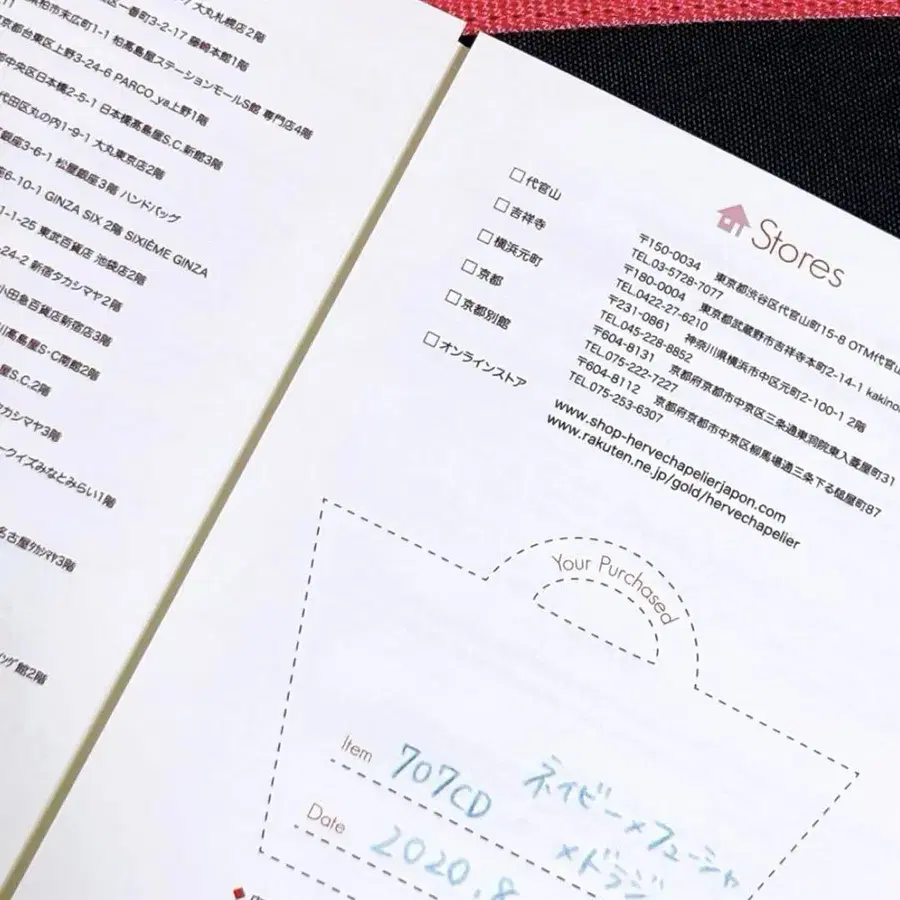 大丸札幌店2階
一番町3-2-17 藤崎本館1階
柏市末広町1-1 柏髙島屋ステーションモールS館 専門店4階
京都台東区上野3-24-6 PARCO_ya上野1階
中央区日本橋2-5-1 日本橋髙島屋S.C.新館3階
代田区丸の内1-9-1 大丸東京店2階
銀座3-6-1 松屋銀座3階 ハンドバッグ
6-10-1 GINZA SIX 2階 SIXIÈME GINZA
1-1-25 東武百貨店 池袋店2階
24-2 新宿タカシマヤ2階
小田急百貨店新宿店3階
川髙島屋S・C南館2階
屋S.C.2階
タカシマヤ3階
ークイズみなとみらい1階
名古屋タカシマヤ3階
館2階
Stores
□代官山
〒150-0034 東京都渋谷区代官山町15-8 OTM代官山
TEL.03-5728-7077
□吉祥寺
〒180-0004 東京都武蔵野市吉祥寺本町2-14-1 kakino
TEL.0422-27-6210
□横浜元町
〒231-0861 神奈川県横浜市中区元町2-100-1 2階
TEL.045-228-8852
□京都
〒604-8131 京都府京都市中京区三条通東洞院東入菱屋町31
TEL.075-222-7227
□京都別館
〒604-8112 京都府京都市中京区柳馬場通三条下る槌屋町87
TEL.075-253-6307
□オンラインストア
www.shop-hervechapelierjapon.com
www.rakuten.ne.jp/gold/hervechapelier
Your Purchased
Item 707CD ネイビー×フューシャ
×ドラジ
Date 2020.8